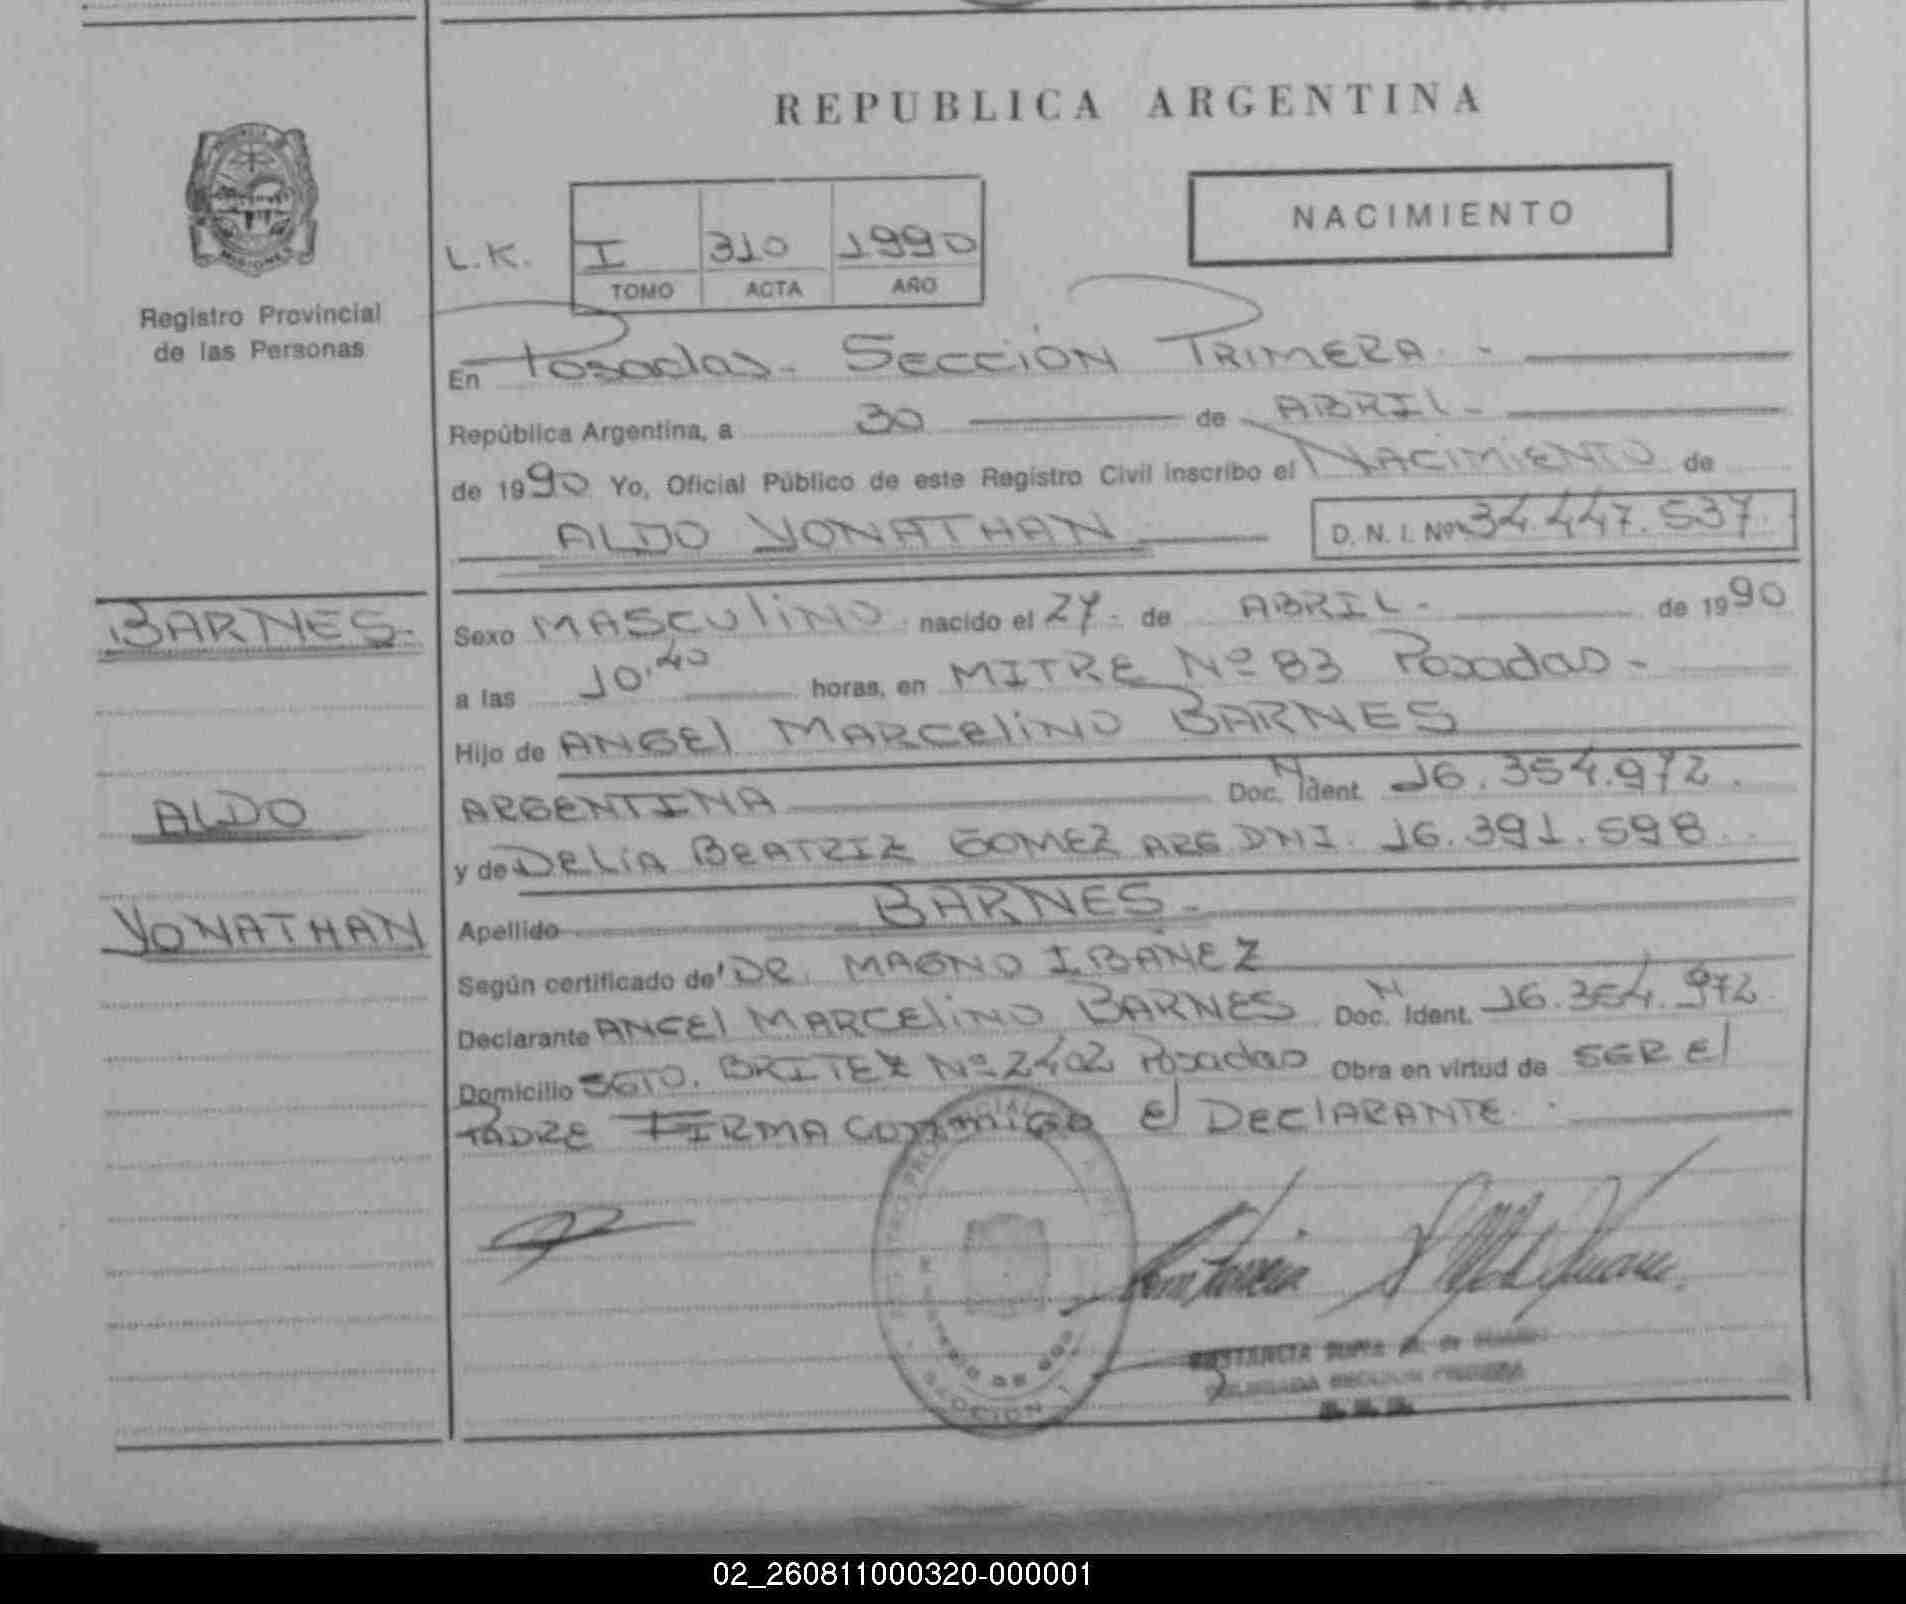 REPUBLICA ARGENTINA
NACIMIENTO
L.K. I 310 1990
TOMO ACTA AÑO
Registro Provincial
de las Personas
En Posadas - SECCIÓN PRIMERA -
República Argentina, a 30 de ABRIL -
de 1990 Yo, Oficial Público de este Registro Civil inscribo el NACIMIENTO de
ALDO YONATHAN D. N. I. Nº 34.447.537
BARNES -
Sexo MASCULINO nacido el 27 - de ABRIL - de 1990
a las 10.40 horas, en MITRE Nº 83 Posadas -
Hijo de ANGEL MARCELINO BARNES
ARGENTINA Doc. N. Ident. 16.354.972.
ALDO
y de DELIA BEATRIZ GOMEZ ARG. DNI. 16.391.598
YONATHAN
Apellido BARNES -
Según certificado de DR. MAGNO IBAÑEZ
Declarante ANGEL MARCELINO BARNES Doc. N. Ident. 16.354.972
Domicilio SGTO. BRITEZ Nº 2402 Posadas Obra en virtud de SER El
PADRE FIRMA conmigo El DECLARANTE.
02_260811000320-000001